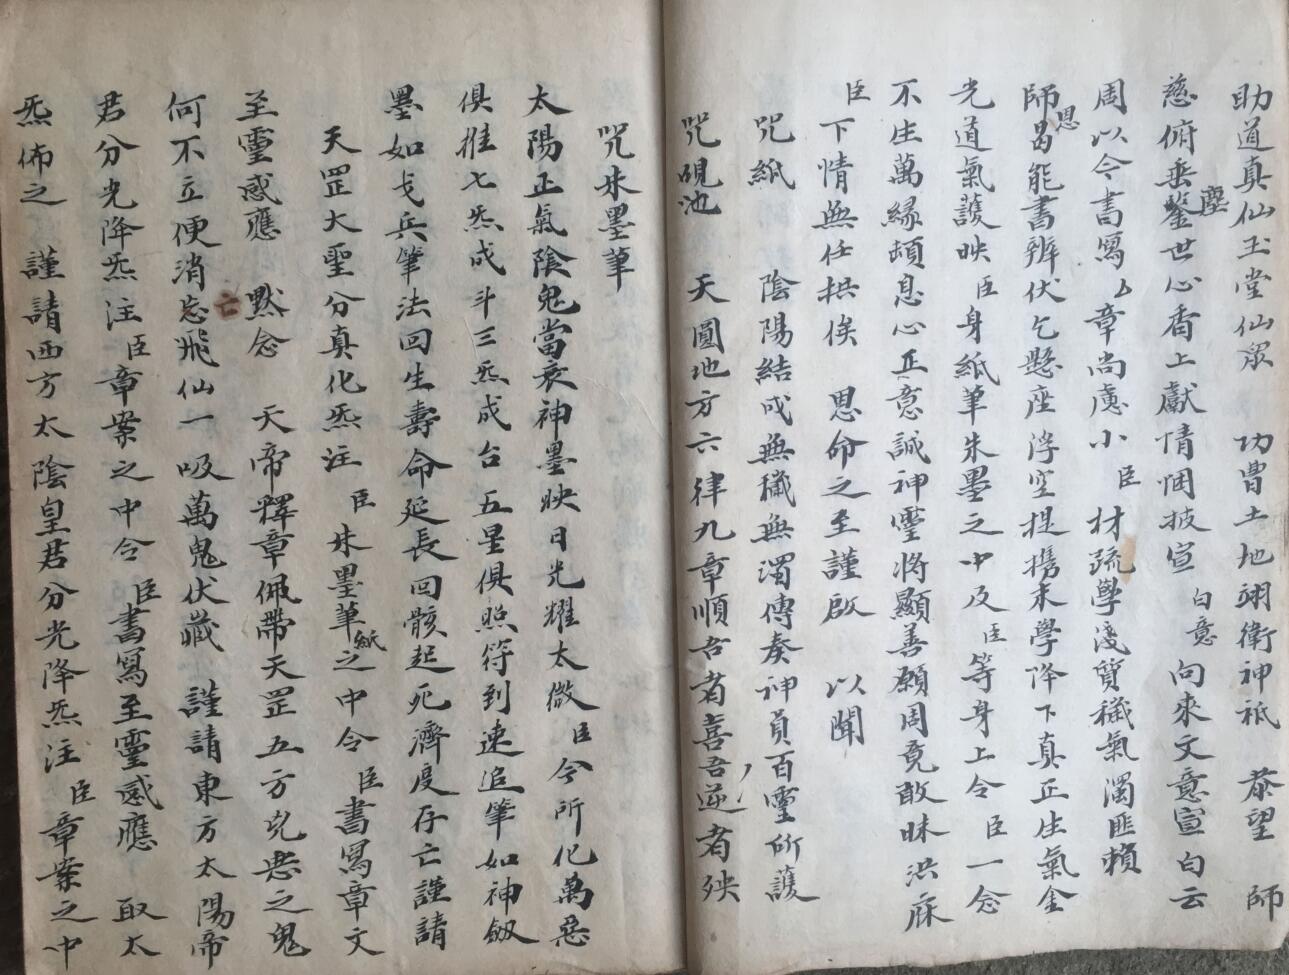 助道真仙玉堂仙眾 功曹土地翊衛神祇 恭望 師
慈俯垂鑒塵世心香上獻情悃披宣 白意 向來文意宣白云
周以今書寫厶章尚慮小臣材疏學淺質穢氣濁匪賴
師恩曷能書辨伏乞懸座浮空提攜末學降下真正生氣金
光道氣護映臣身紙筆朱墨之中及臣等身上令臣一念
不生萬緣頓息心正意誠神靈將顯善願周竟敢昧洪庥
臣下情無任拱俟 恩命之至謹啟 以聞
咒紙 陰陽結成無穢無濁傳奏神員百靈所護
咒硯池 天圓地方六律九章順吾者喜逆吾者殃
咒朱墨筆
太陽正氣陰鬼當衰神墨映日光耀太微臣今所化萬惡
俱摧七炁成斗三炁成台五星俱照符到速追筆如神劔
墨如戈兵筆法回生壽命延長回骸起死濟度存亡謹請
天罡大聖分真化炁注臣朱墨筆紙之中令臣書寫章文
至靈感應 默念 天帝釋章佩帶天罡五方兇惡之鬼
何不立便消亡飛仙一吸萬鬼伏藏 謹請東方太陽帝
君分光降炁注臣章案之中令臣書寫至靈感應 取太
炁佈之 謹請西方太陰皇君分光降炁注臣章案之中